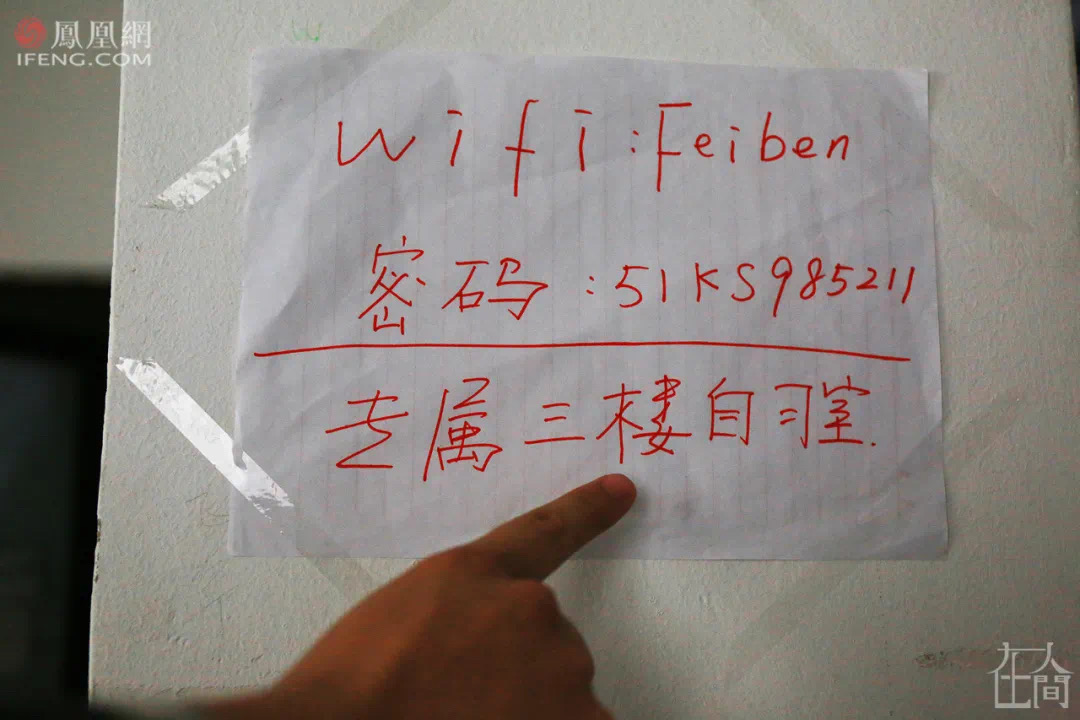 鳳凰網
IFENG.COM
Wifi:Feiben
密码:51KS985211
专属三楼自习室.
在人間